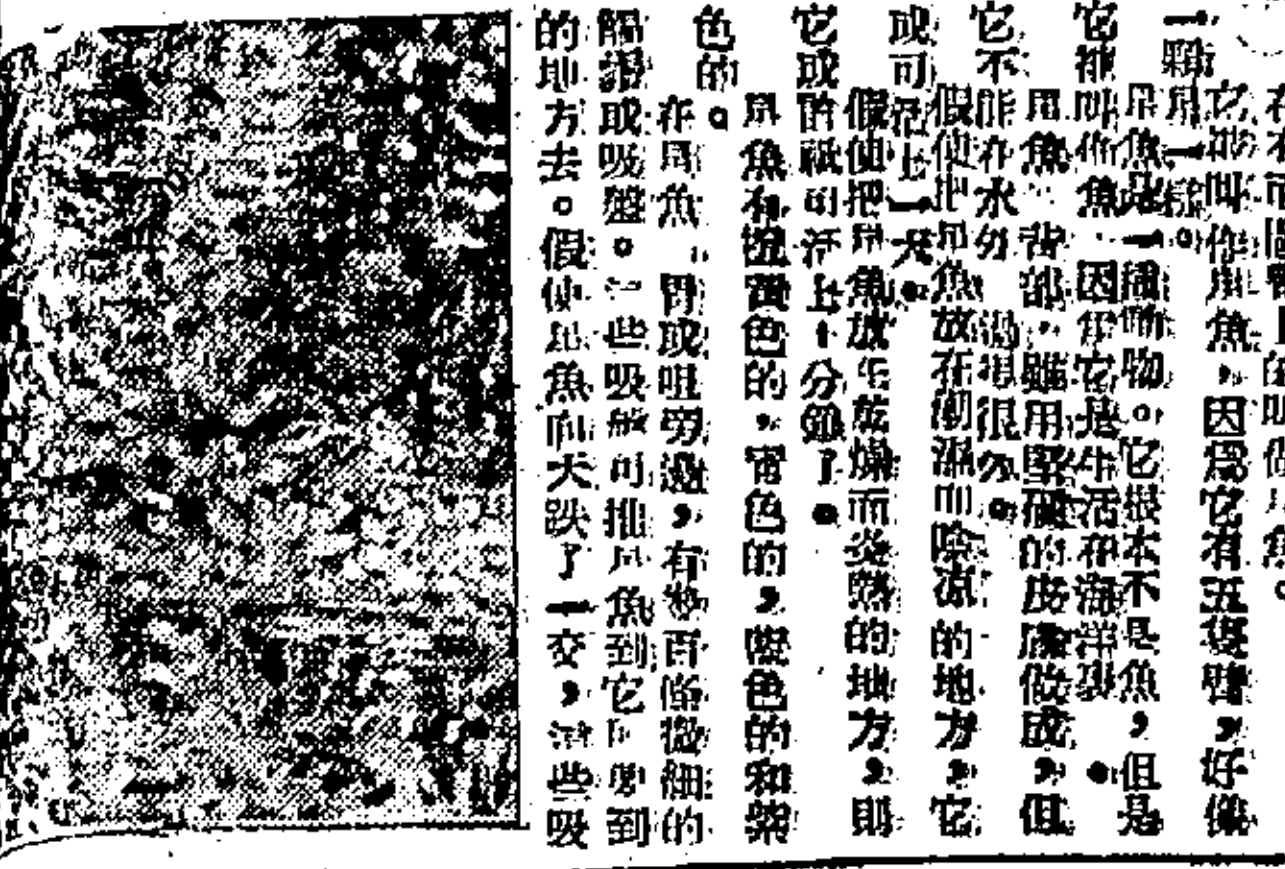 它叫作星魚，因爲它有五隻臂，好像
一顆星一樣。
星魚是一種動物。它根本不是魚，但是
它被叫作魚，因爲它是生活在海洋裏。
星魚背部，雖用堅硬的皮膚做成，但
它不能在水外過得很久。
假使把星魚放在潮濕而陰凉的地方，它
或可活上一天。
假使把星魚放在乾燥而炎熱的地方，則
它或許祇可活上十分鐘了。
星魚有橙黃色的，青色的，色的和紫
色的。
在星魚臂或咀旁邊，有幾百條微細的
觸鬚或吸盤。這些吸盤可推星魚到它所要到
的地方去。假使星魚向天跌了一交，這些吸